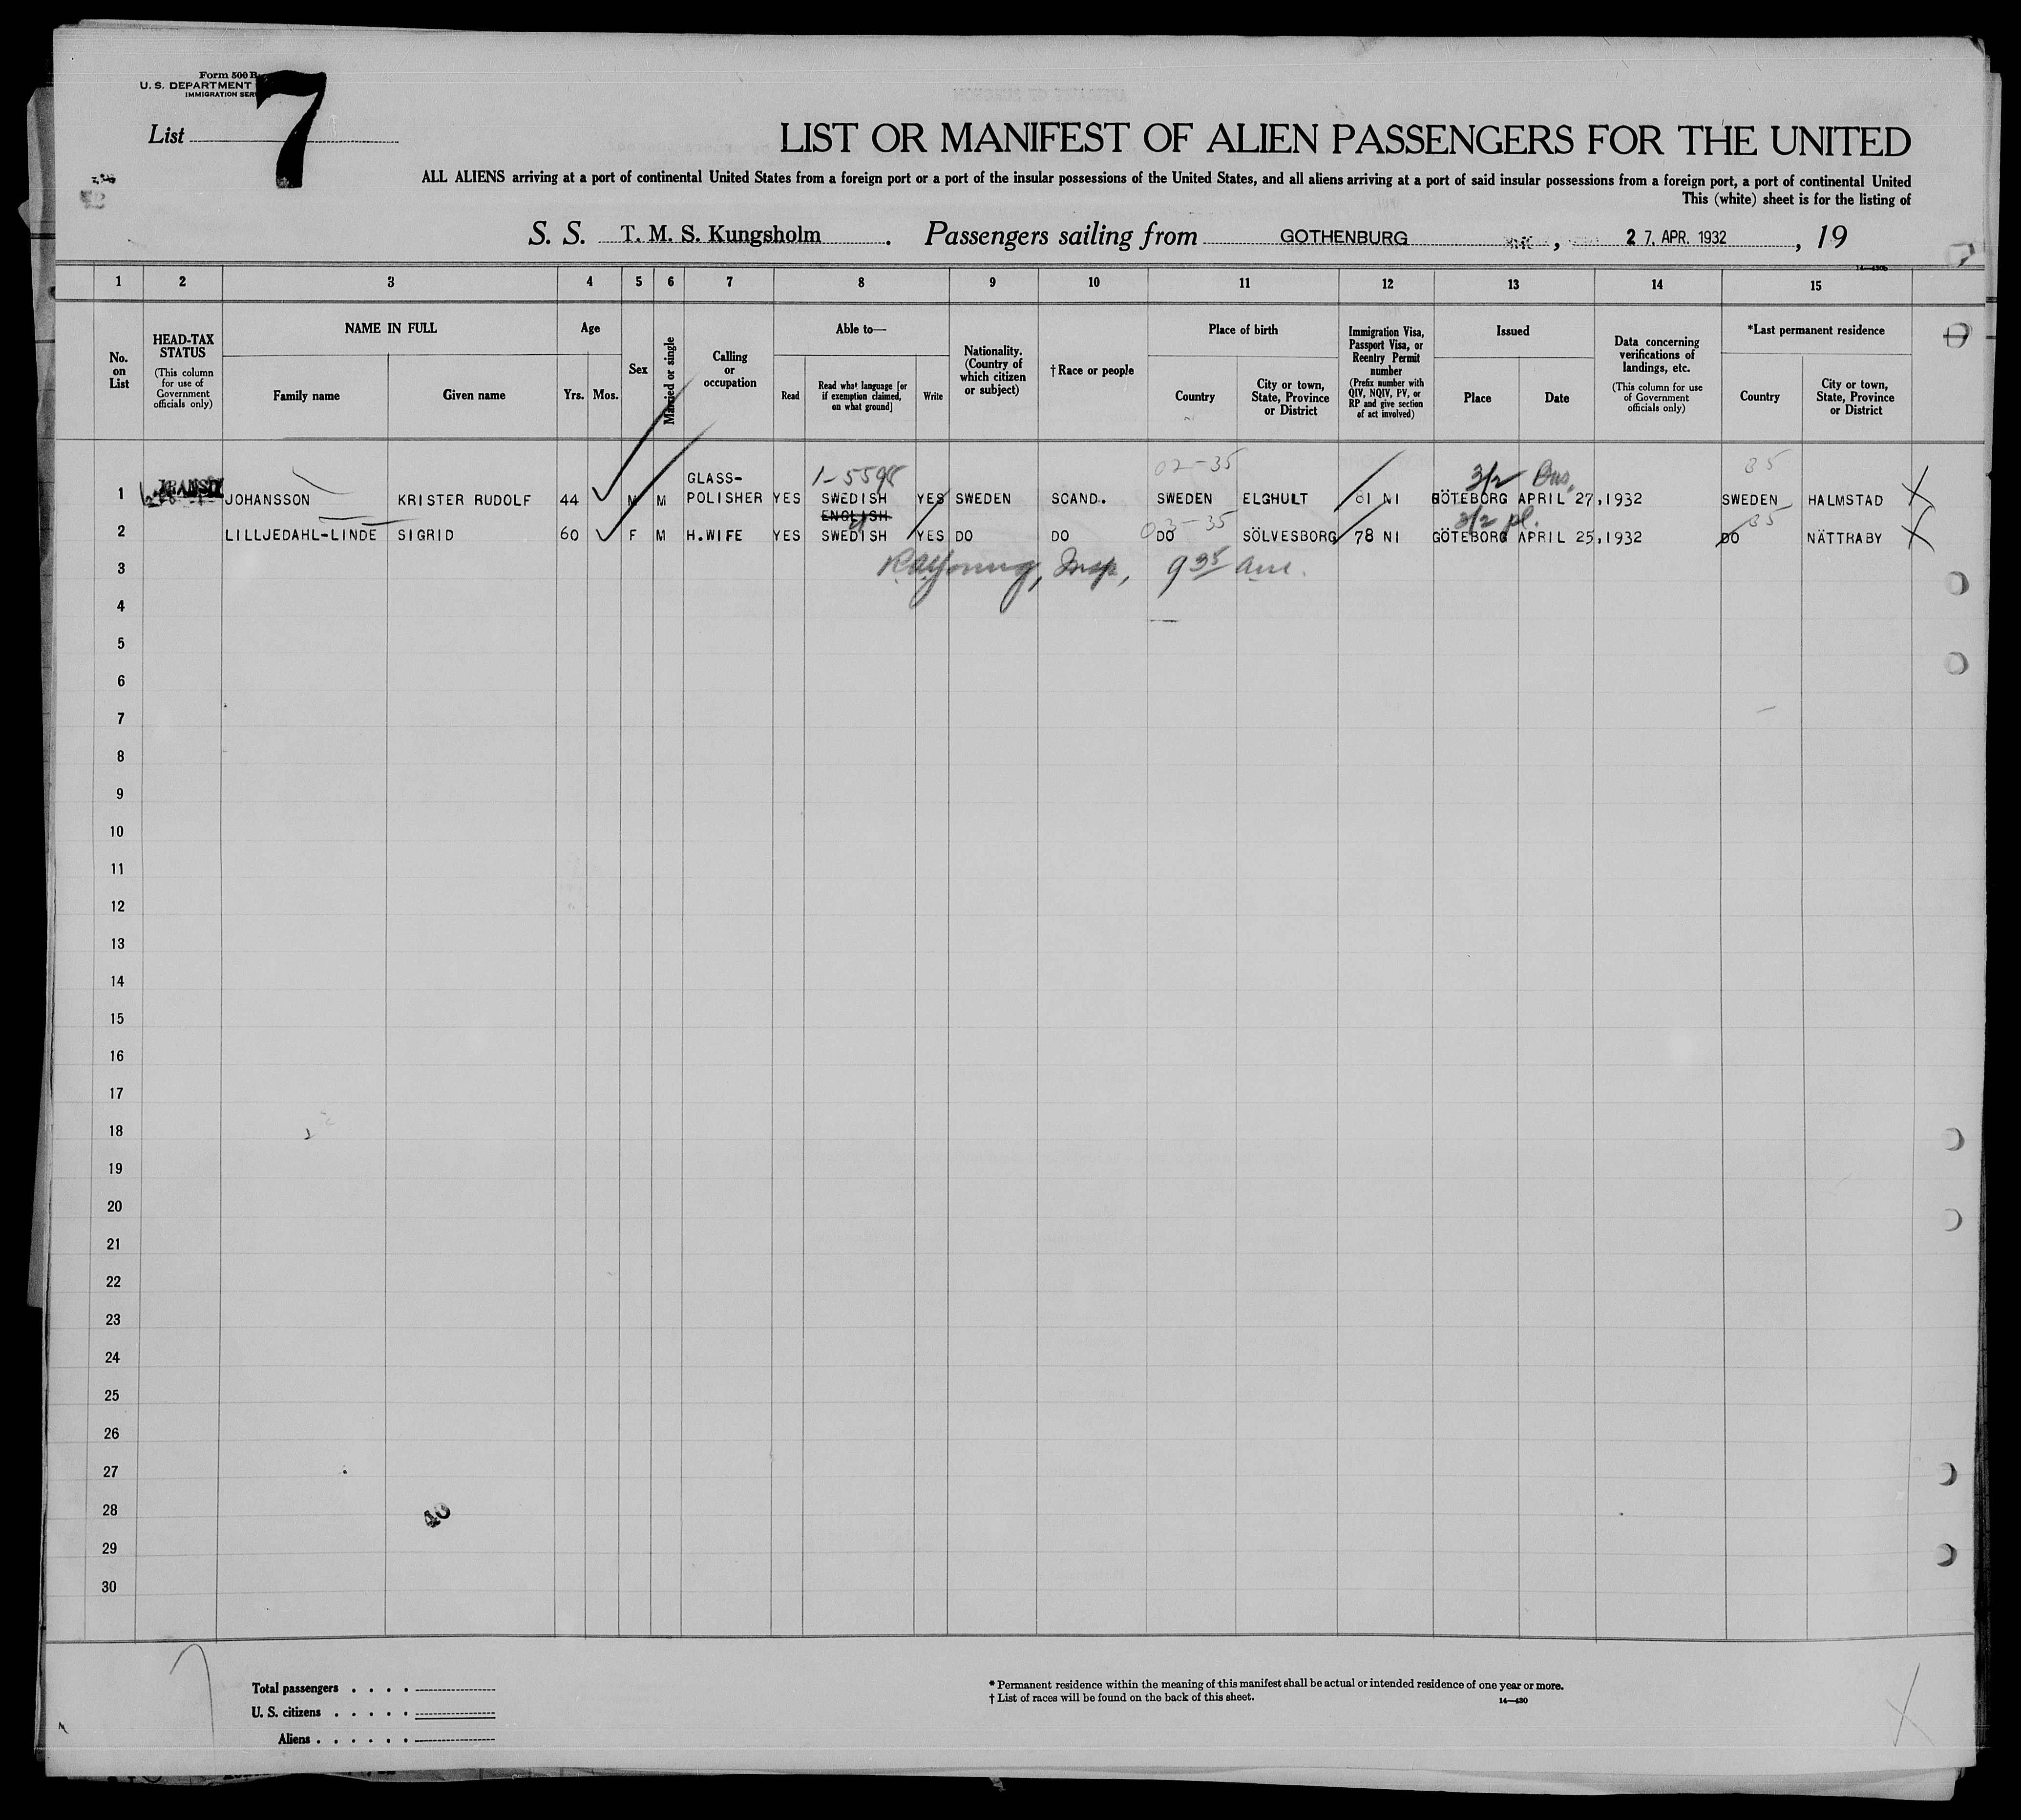 Form 500 B
U. S. DEPARTMENT
IMMIGRATION SER
List 7
LIST OR MANIFEST OF ALIEN PASSENGERS FOR THE UNITED
ALL ALIENS arriving at a port of continental United States from a foreign port or a port of the insular possessions of the United States, and all aliens arriving at a port of said insular possessions from a foreign port, a port of continental United
This (white) sheet is for the listing of
S. S. T. M. S. Kungsholm. Passengers sailing from GOTHENBURG, 27. APR. 1932, 19
1 2 3 4 5 6 7 8 9 10 11 12 13 14 15
No. on List
HEAD-TAX STATUS
(This column for use of Government officials only)
NAME IN FULL
Family name
Given name
Age
Yrs. Mos.
Sex
Married or single
Calling or occupation
Able to—
Read
Read what language [or if exemption claimed, on what ground]
Write
Nationality. (Country of which citizen or subject)
†Race or people
Place of birth
Country
City or town, State, Province or District
Immigration Visa, Passport Visa, or Reentry Permit number
(Prefix number with QIV, NQIV, PV, or RP and give section of act involved)
Issued
Place
Date
Data concerning verifications of landings, etc.
(This column for use of Government officials only)
*Last permanent residence
Country
City or town, State, Province or District
1-5598 02-35 3/2 85
TRANSIT
GLASS-
1 JOHANSSON KRISTER RUDOLF 44 M M POLISHER YES SWEDISH YES SWEDEN SCAND. SWEDEN ELGHULT 81 NI GÖTEBORG APRIL 27,1932 SWEDEN HALMSTAD
ENGLISH
03-35 3/2 pl. 85
2 LILLJEDAHL-LINDE SIGRID 60 F M H.WIFE YES SWEDISH YES DO DO DO SÖLVESBORG 78 NI GÖTEBORG APRIL 25,1932 DO NÄTTRABY
3 Insp, 9 35 am.
4
5
6
7
8
9
10
11
12
13
14
15
16
17
18
19
20
21
22
23
24
25
26
27
28
40
29
30
Total passengers . . . .
U. S. citizens . . . . .
Aliens . . . . . .
* Permanent residence within the meaning of this manifest shall be actual or intended residence of one year or more.
† List of races will be found on the back of this sheet.
14—430